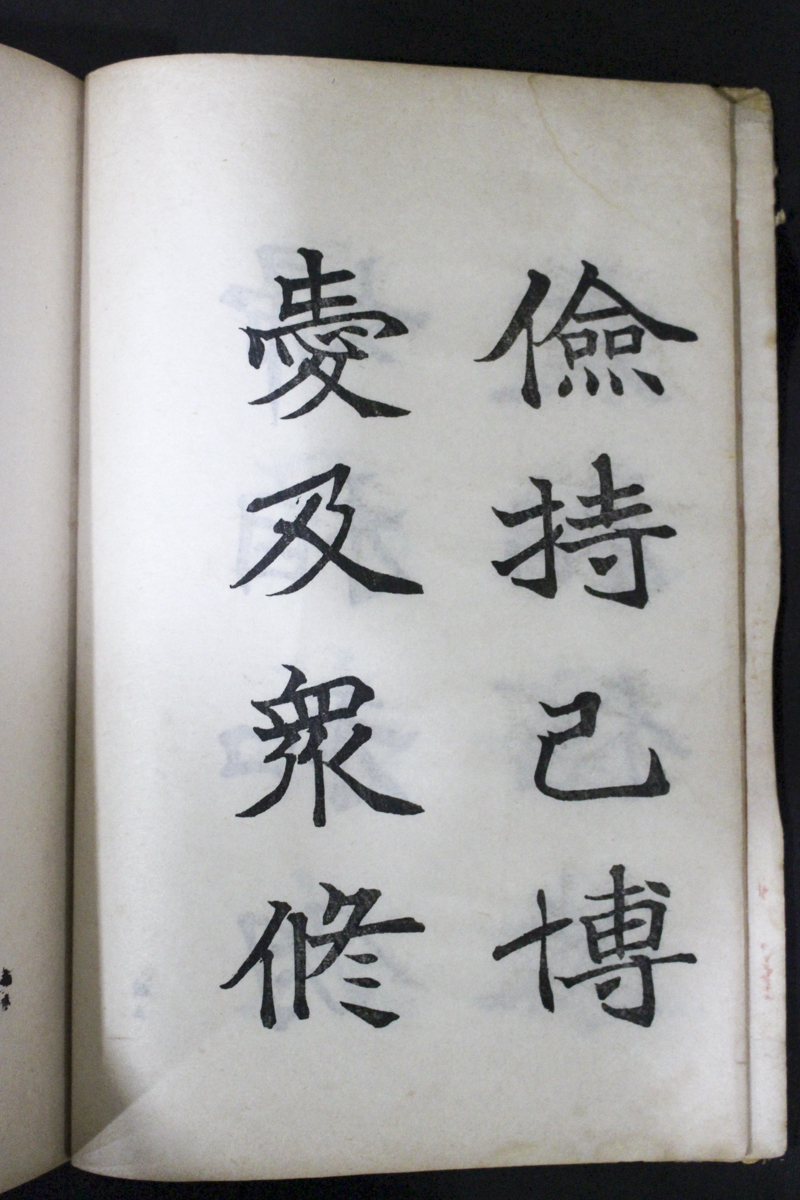 儉持己博
愛及衆修